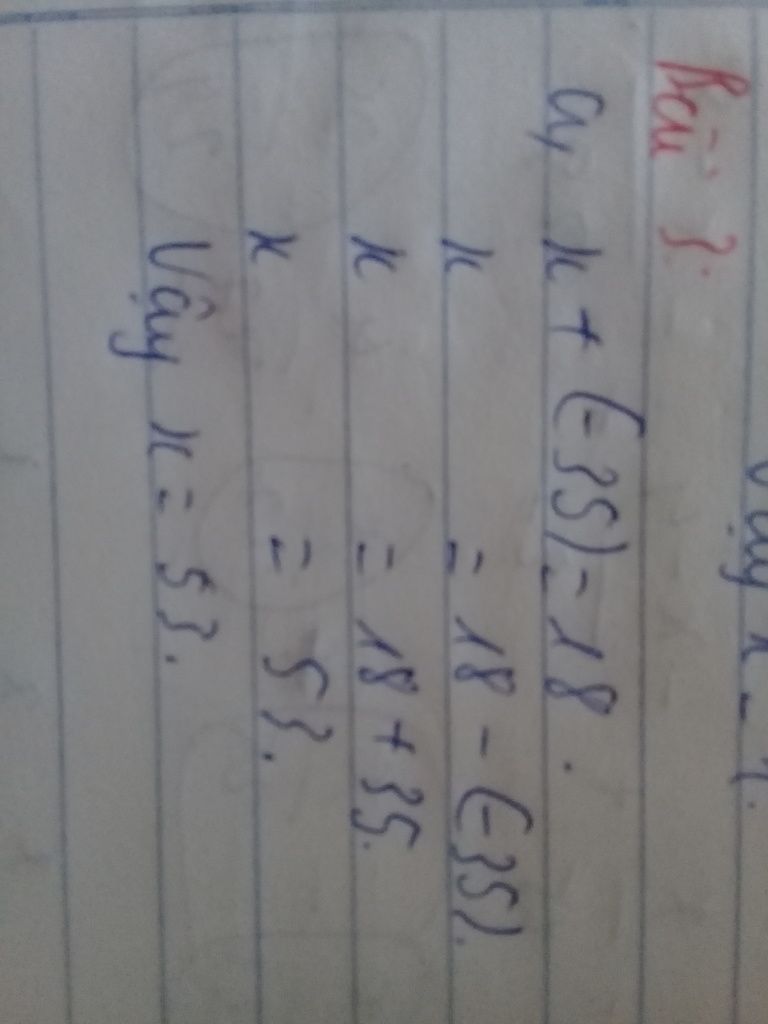 Vậy x = 1.
Bài 3:
a, x + (-35) = 18.
x = 18 - (-35).
x = 18 + 35.
x = 53.
Vậy x = 53.